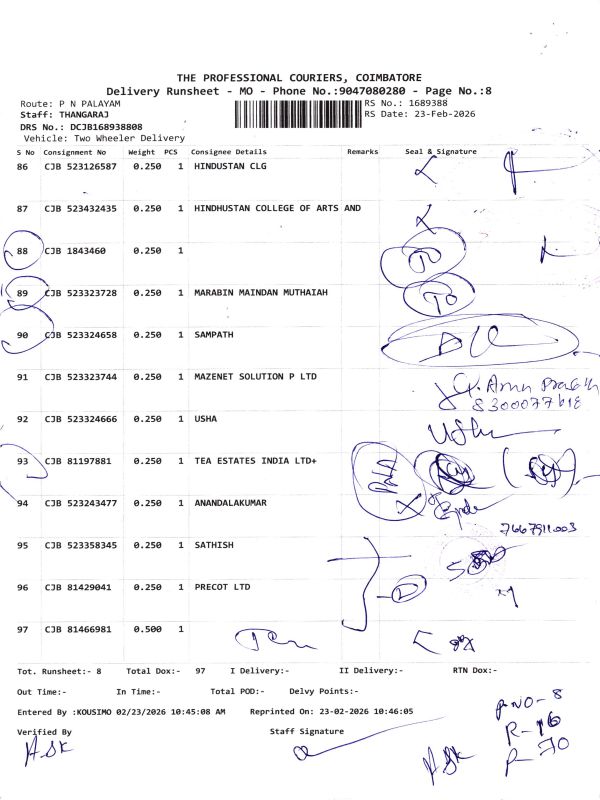 THE PROFESSIONAL COURIERS, COIMBATORE
Delivery Runsheet - MO - Phone No.:9047080280 - Page No.:8
Route: P N PALAYAM RS No.: 1689388
Staff: THANGARAJ RS Date: 23-Feb-2026
DRS No.: DCJB168938808
Vehicle: Two Wheeler Delivery
S No Consignment No Weight PCS Consignee Details Remarks Seal & Signature
86 CJB 523126587 0.250 1 HINDUSTAN CLG
87 CJB 523432435 0.250 1 HINDHUSTAN COLLEGE OF ARTS AND
88 CJB 1843460 0.250 1
89 CJB 523323728 0.250 1 MARABIN MAINDAN MUTHAIAH
90 CJB 523324658 0.250 1 SAMPATH
91 CJB 523323744 0.250 1 MAZENET SOLUTION P LTD
8300077618
92 CJB 523324666 0.250 1 USHA Usha
93 CJB 81197881 0.250 1 TEA ESTATES INDIA LTD+
94 CJB 523243477 0.250 1 ANANDALAKUMAR
95 CJB 523358345 0.250 1 SATHISH
96 CJB 81429041 0.250 1 PRECOT LTD
97 CJB 81466981 0.500 1
Tot. Runsheet:- 8 Total Dox:- 97 I Delivery:- II Delivery:- RTN Dox:-
Out Time:- In Time:- Total POD:- Delvy Points:-
Entered By :KOUSIMO 02/23/2026 10:45:08 AM Reprinted On: 23-02-2026 10:46:05
Verified By Staff Signature
P.NO-8
R-16
P-70